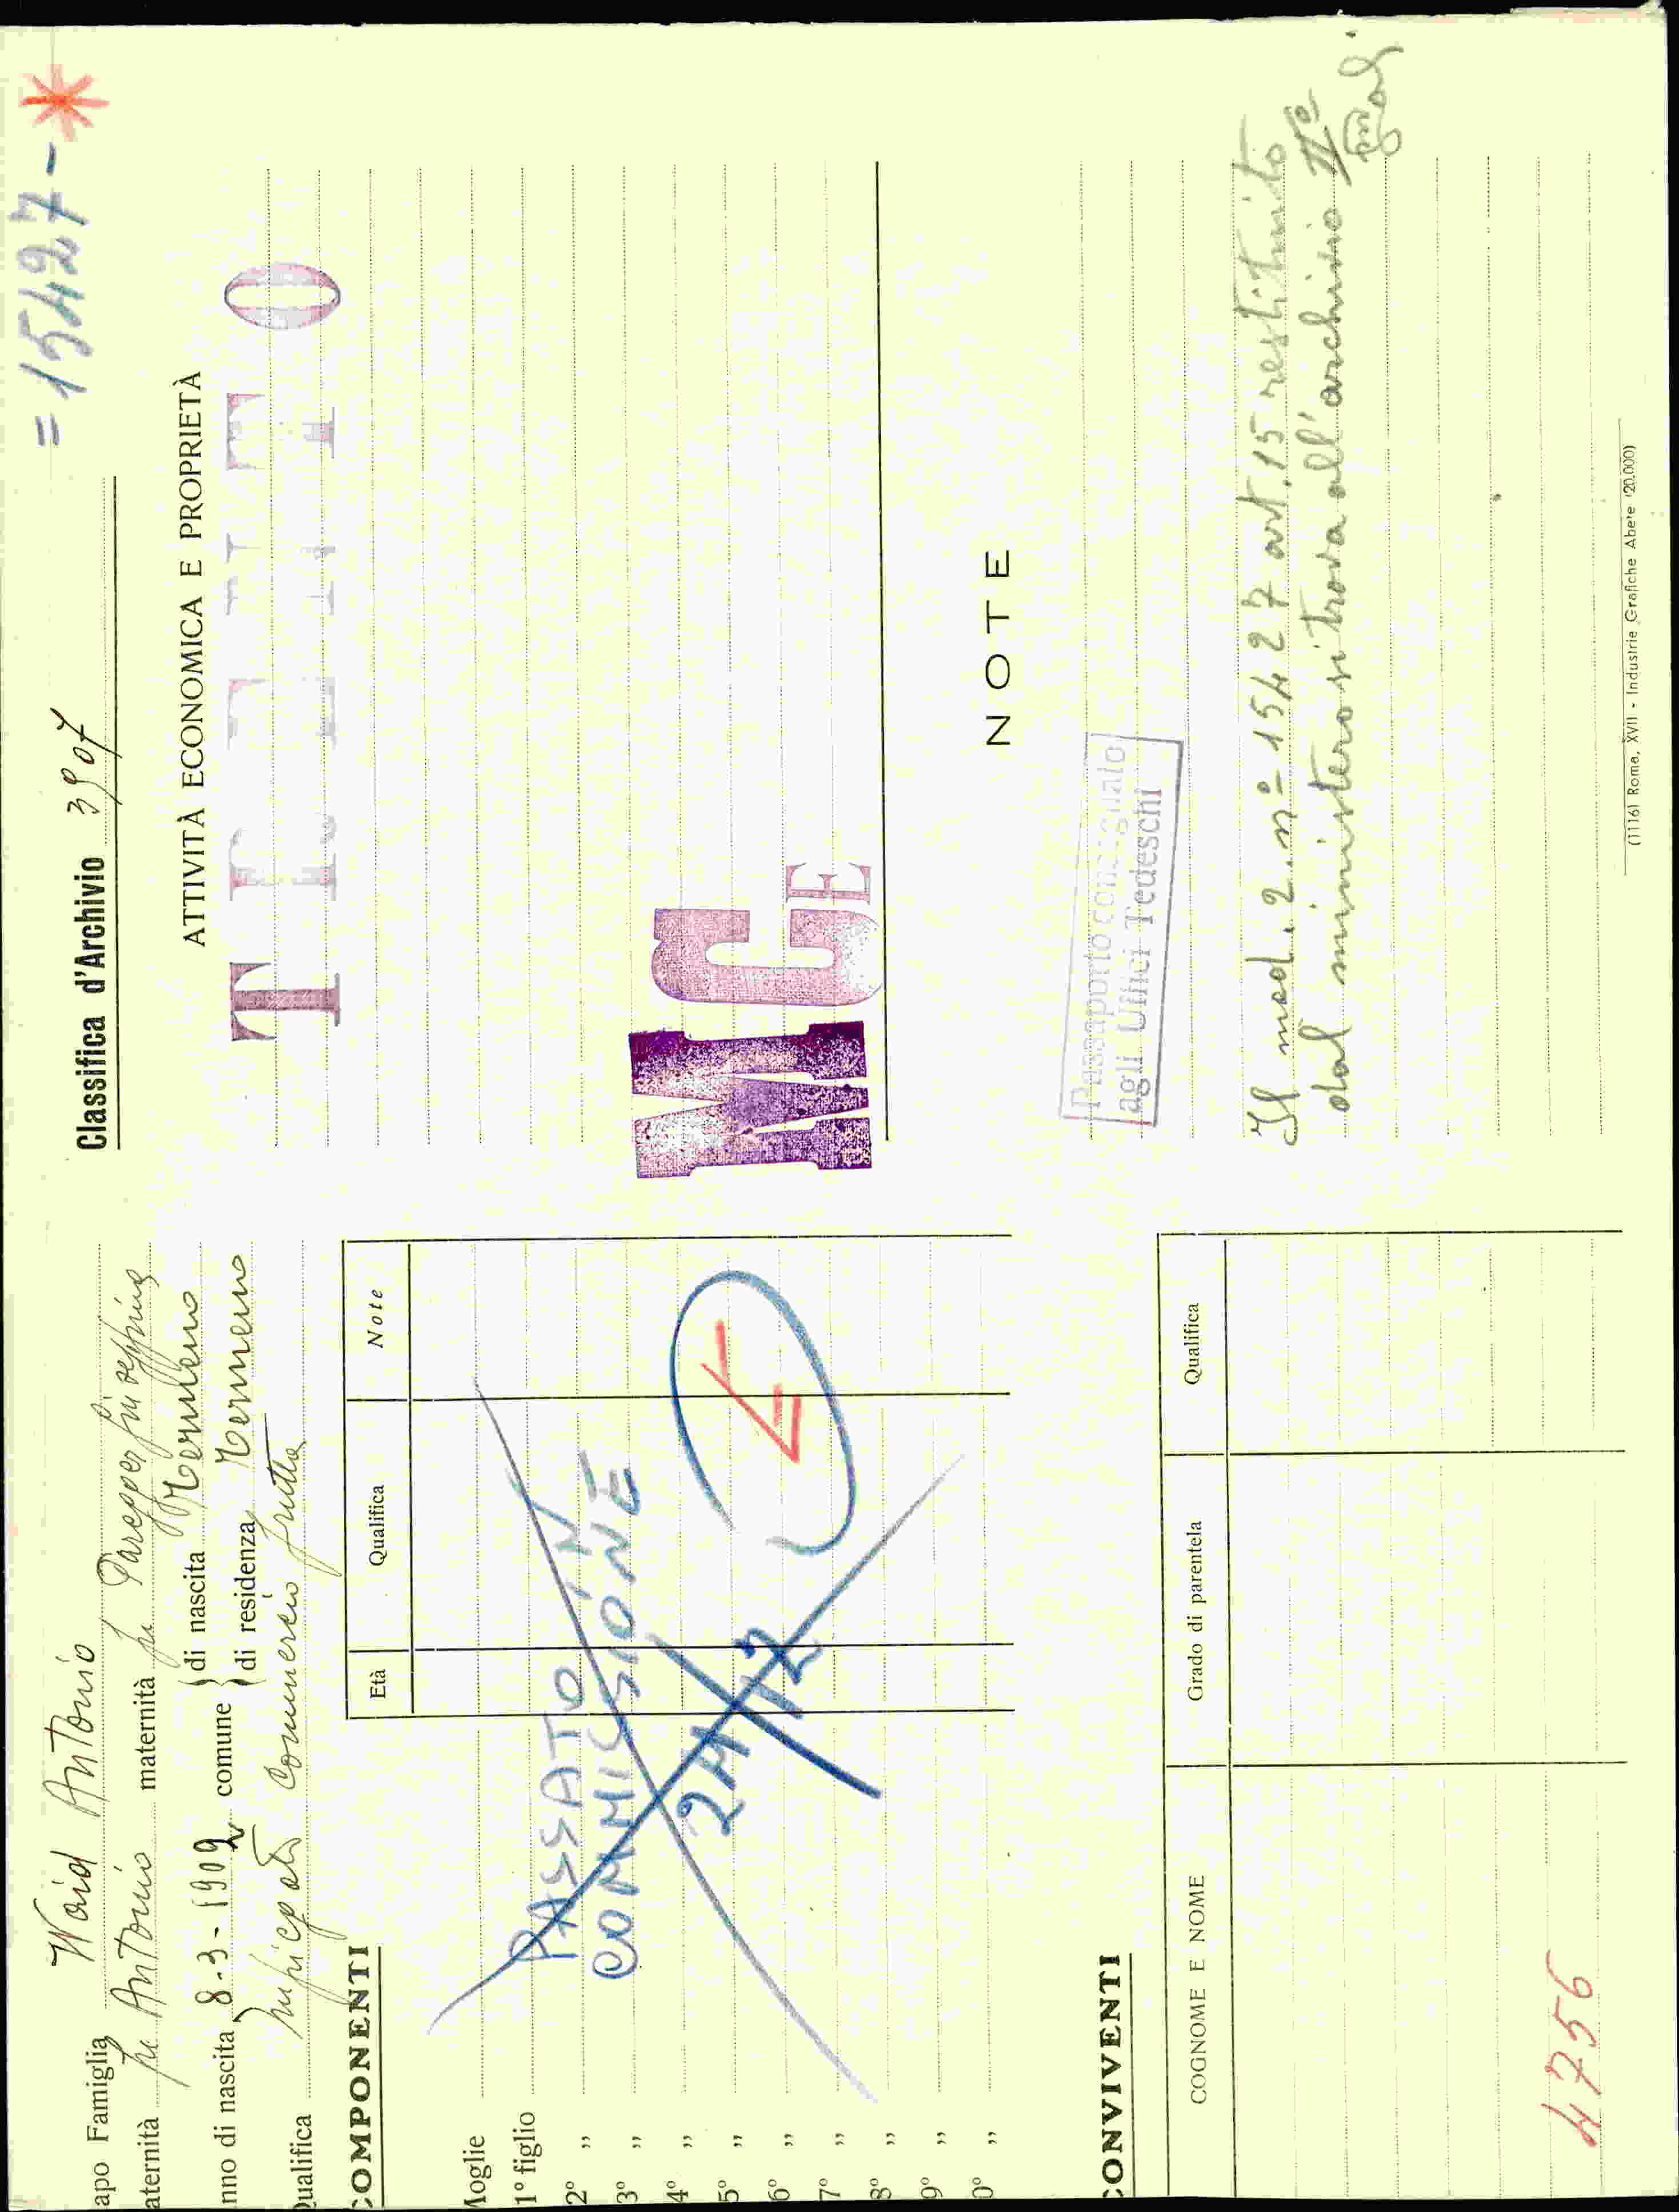 = 15427 - *
Classifica d'Archivio 3907
apo Famiglia Waid Antonio
aternità fu Antonio maternità fu
nno di nascita 8-3-1909 comune } di nascita Termeno
} di residenza Termeno
Qualifica Impiegato commercio frutta
COMPONENTI
Età Qualifica Note
Moglie
1° figlio
2° „
3° „
4° „
5° „
6° „
7° „
8° „
9° „
0° „
PASSATO IN
COMMISSIONE
24/12
CONVIVENTI
COGNOME E NOME Grado di parentela Qualifica
4756
ATTIVITÀ ECONOMICA E PROPRIETÀ
M GE
NOTE
Passaporto consegnato
agli Uffici Tedeschi
Il mod. 2. n° 15427 art. 15 restituito
dal ministero si trova all'archivio II°
(1116) Roma, XVII - Industrie Grafiche Abete (20.000)